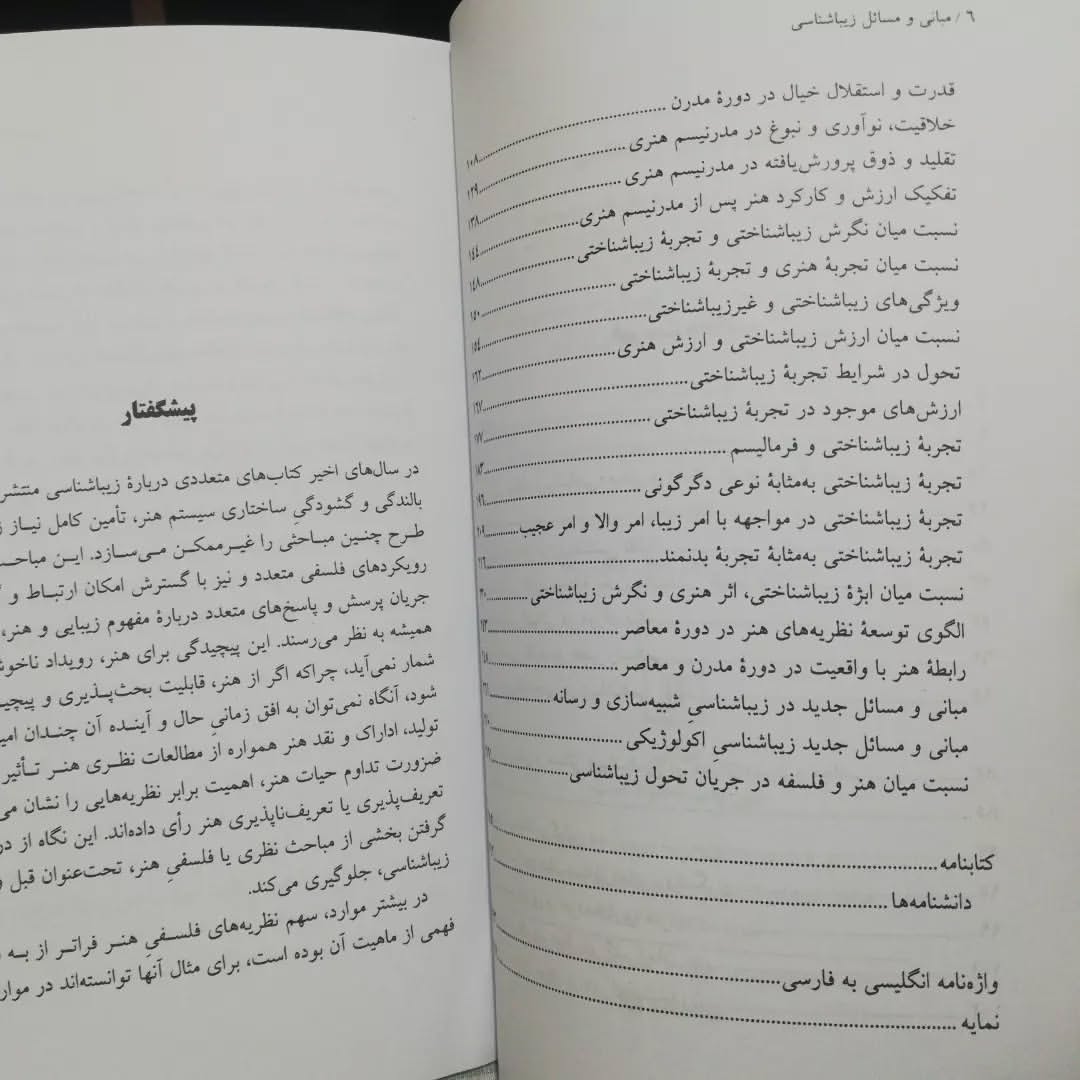 ۶ / مبانی و مسائل زیباشناسی
قدرت و استقلال خیال در دورهٔ مدرن ۱۰۸
خلاقیت، نوآوری و نبوغ در مدرنیسم هنری ۱۲۹
تقلید و ذوق پرورش‌یافته در مدرنیسم هنری ۱۳۸
تفکیک ارزش و کارکرد هنر پس از مدرنیسم هنری ۱۴۴
نسبت میان نگرش زیباشناختی و تجربهٔ زیباشناختی ۱۴۸
نسبت میان تجربهٔ هنری و تجربهٔ زیباشناختی ۱۵۰
ویژگی‌های زیباشناختی و غیرزیباشناختی ۱۵۴
نسبت میان ارزش زیباشناختی و ارزش هنری
تحول در شرایط تجربهٔ زیباشناختی
ارزش‌های موجود در تجربهٔ زیباشناختی
تجربهٔ زیباشناختی و فرمالیسم
تجربهٔ زیباشناختی به‌مثابهٔ نوعی دگرگونی
تجربهٔ زیباشناختی در مواجهه با امر زیبا، امر والا و امر عجیب
تجربهٔ زیباشناختی به‌مثابهٔ تجربهٔ بدنمند
نسبت میان ابژهٔ زیباشناختی، اثر هنری و نگرش زیباشناختی
الگوی توسعهٔ نظریه‌های هنر در دورهٔ معاصر
رابطهٔ هنر با واقعیت در دورهٔ مدرن و معاصر
مبانی و مسائل جدید در زیباشناسیِ شبیه‌سازی و رسانه
مبانی و مسائل جدید زیباشناسیِ اکولوژیکی
نسبت میان هنر و فلسفه در جریان تحول زیباشناسی
کتابنامه
دانشنامه‌ها
واژه‌نامه انگلیسی به فارسی
نمایه
پیشگفتار
در سال‌های اخیر کتاب‌های متعددی دربارهٔ زیباشناسی منتشر
بالندگی و گشودگیِ ساختاری سیستم هنر، تأمین کامل نیاز
طرح چنین مباحثی را غیرممکن می‌سازد. این مباحـ
رویکردهای فلسفی متعدد و نیز با گسترش امکان ارتباط و
جریان پرسش و پاسخ‌های متعدد دربارهٔ مفهوم زیبایی و هنر،
همیشه به نظر می‌رسند. این پیچیدگی برای هنر، رویداد ناخوشـ
شمار نمی‌آید، چراکه اگر از هنر، قابلیت بحث‌پذیری و پیچیـ
شود، آنگاه نمی‌توان به افق زمانیِ حال و آینده آن چندان امیـ
تولید، ادراک و نقد هنر همواره از مطالعات نظری هنر تأثیر
ضرورت تداوم حیات هنر، اهمیت برابر نظریه‌هایی را نشان می
تعریف‌پذیری یا تعریف‌ناپذیری هنر رأی داده‌اند. این نگاه از در
گرفتن بخشی از مباحث نظری یا فلسفیِ هنر، تحت‌عنوان قبل
زیباشناسی، جلوگیری می‌کند.
در بیشتر موارد، سهم نظریه‌های فلسفیِ هنر فراتر از به
فهمی از ماهیت آن بوده است، برای مثال آنها توانسته‌اند در موار